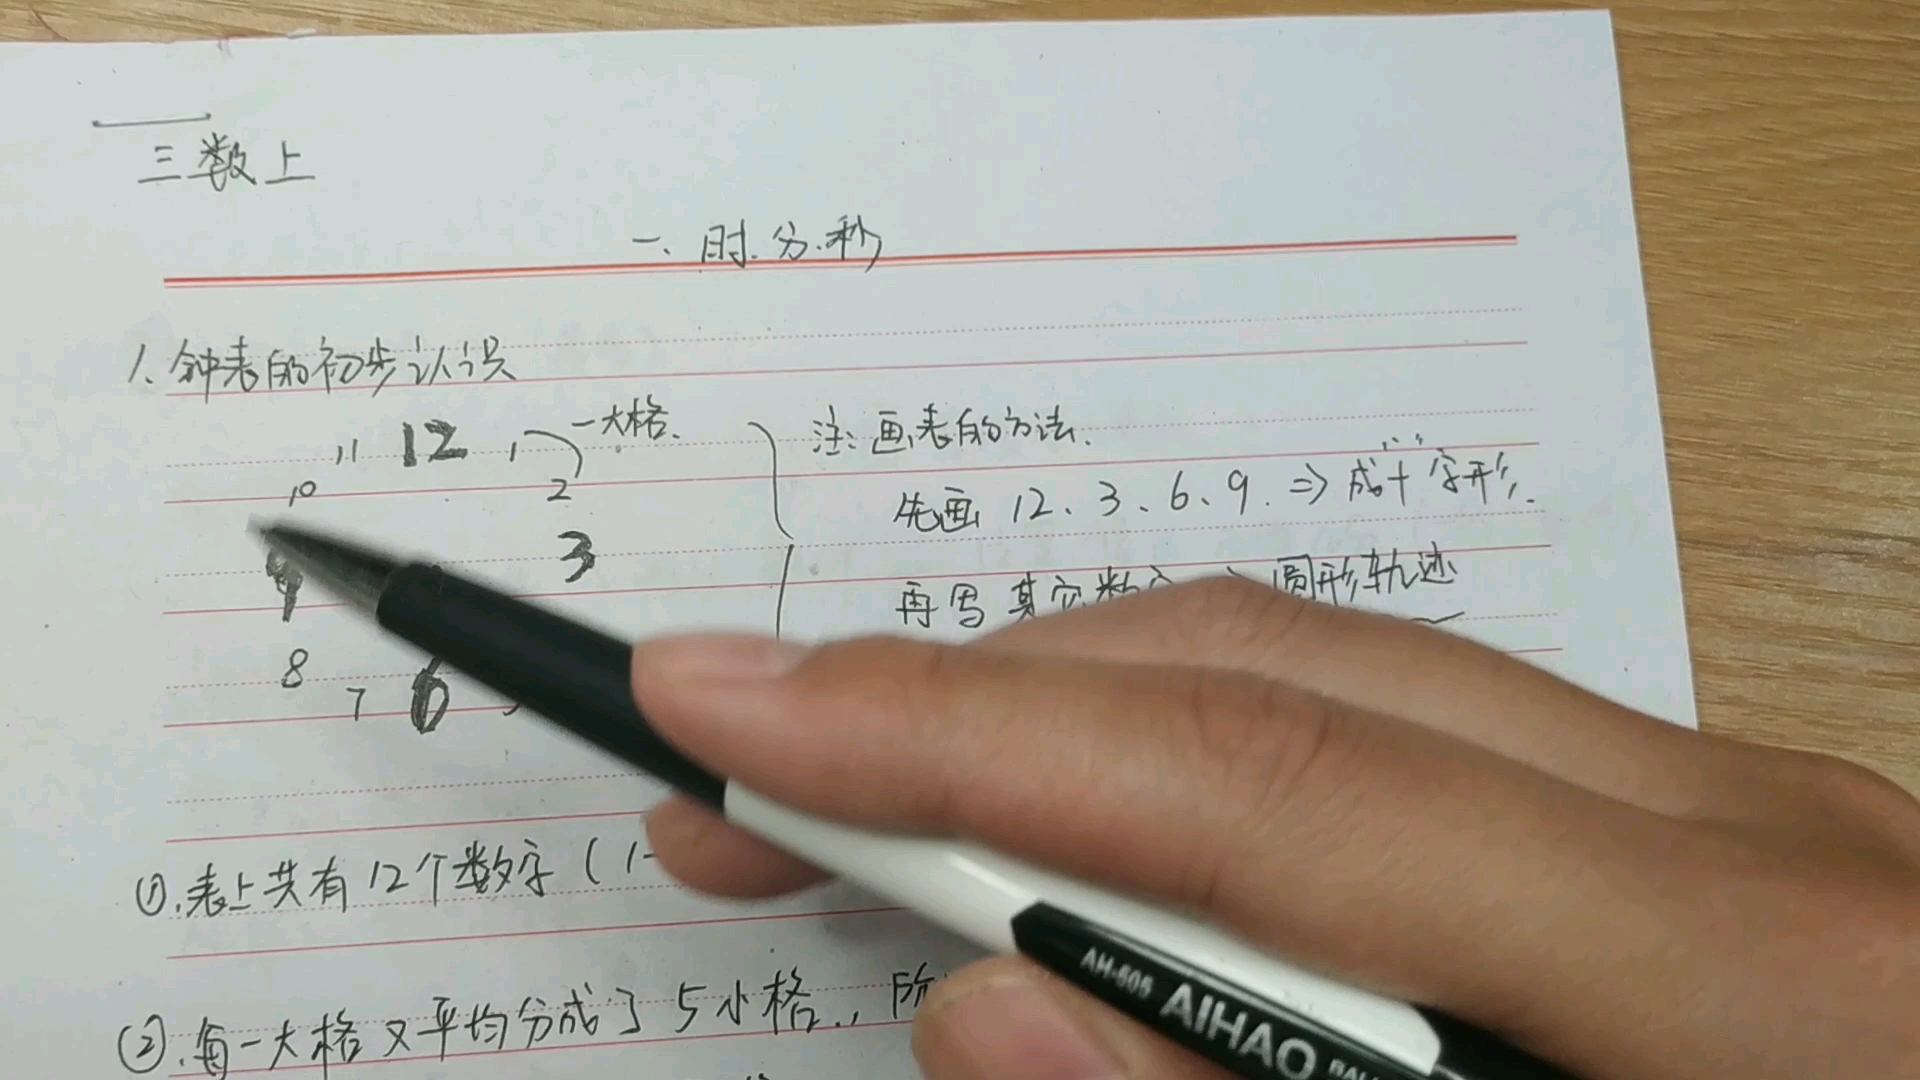 三数上
一、时、分、秒
1、钟表的初步认识
11 12 1 一大格.
10 2
9 3
8 7 6
注:画表的方法.
先画 12、3、6、9. ⇒ 成十字形.
再写其它数 圆形轨迹
①.表上共有12个数字(1-
②.每一大格又平均分成了5小格.,
AH-505 AIHAO